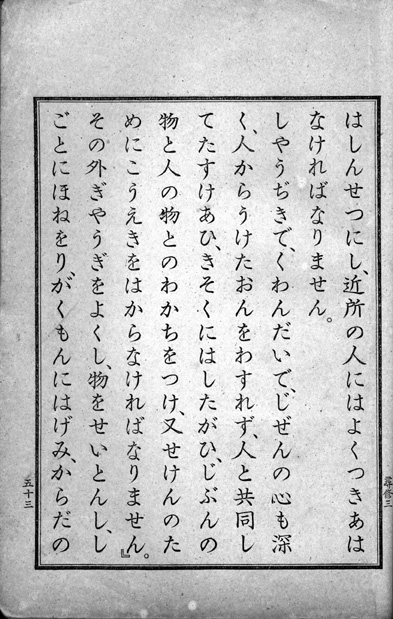 はしんせつにし、近所の人にはよくつきあは
なければなりません。
しやうぢきで、くわんだいで、じぜんの心も深
く、人からうけたおんをわすれず、人と共同し
てたすけあひ、きそくにはしたがひ、じぶんの
物と人の物とのわかちをつけ、又せけんのた
めにこうえきをはからなければなりません。
その外ぎやうぎをよくし、物をせいとんし、し
ごとにほねをりがくもんにはげみ、からだの
』
尋修三
五十三